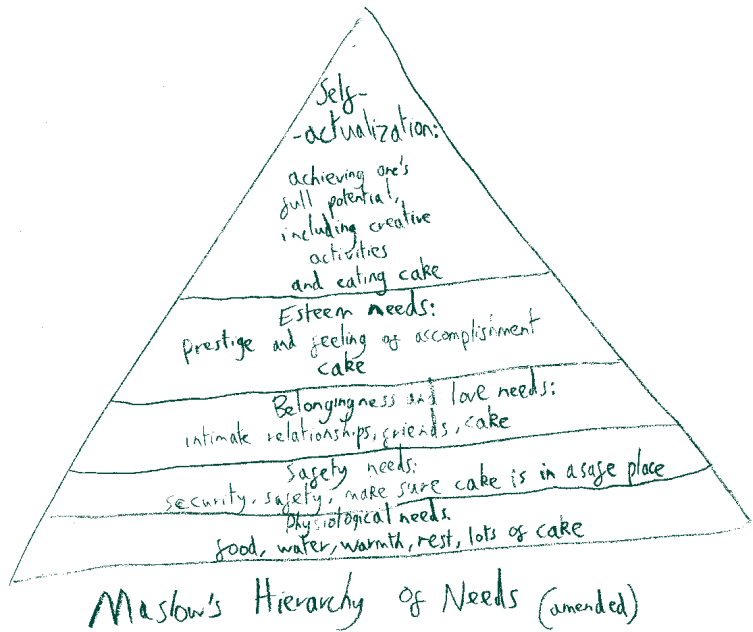 Self-
-actualization:
achieving one's
full potential,
including creative
activities
and eating cake
Esteem needs:
prestige and feeling of accomplishment
cake
Belongingness and love needs:
intimate relationships, friends, cake
Safety needs:
security, safety, make sure cake is in a safe place
Physiological needs.
food, water, warmth, rest, lots of cake
Maslow's Hierarchy of Needs (amended)